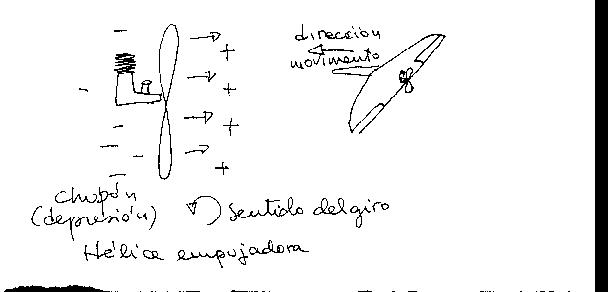 dirección
movimento
Chupón
(depresión)
Sentido del giro
Hélice empujadora